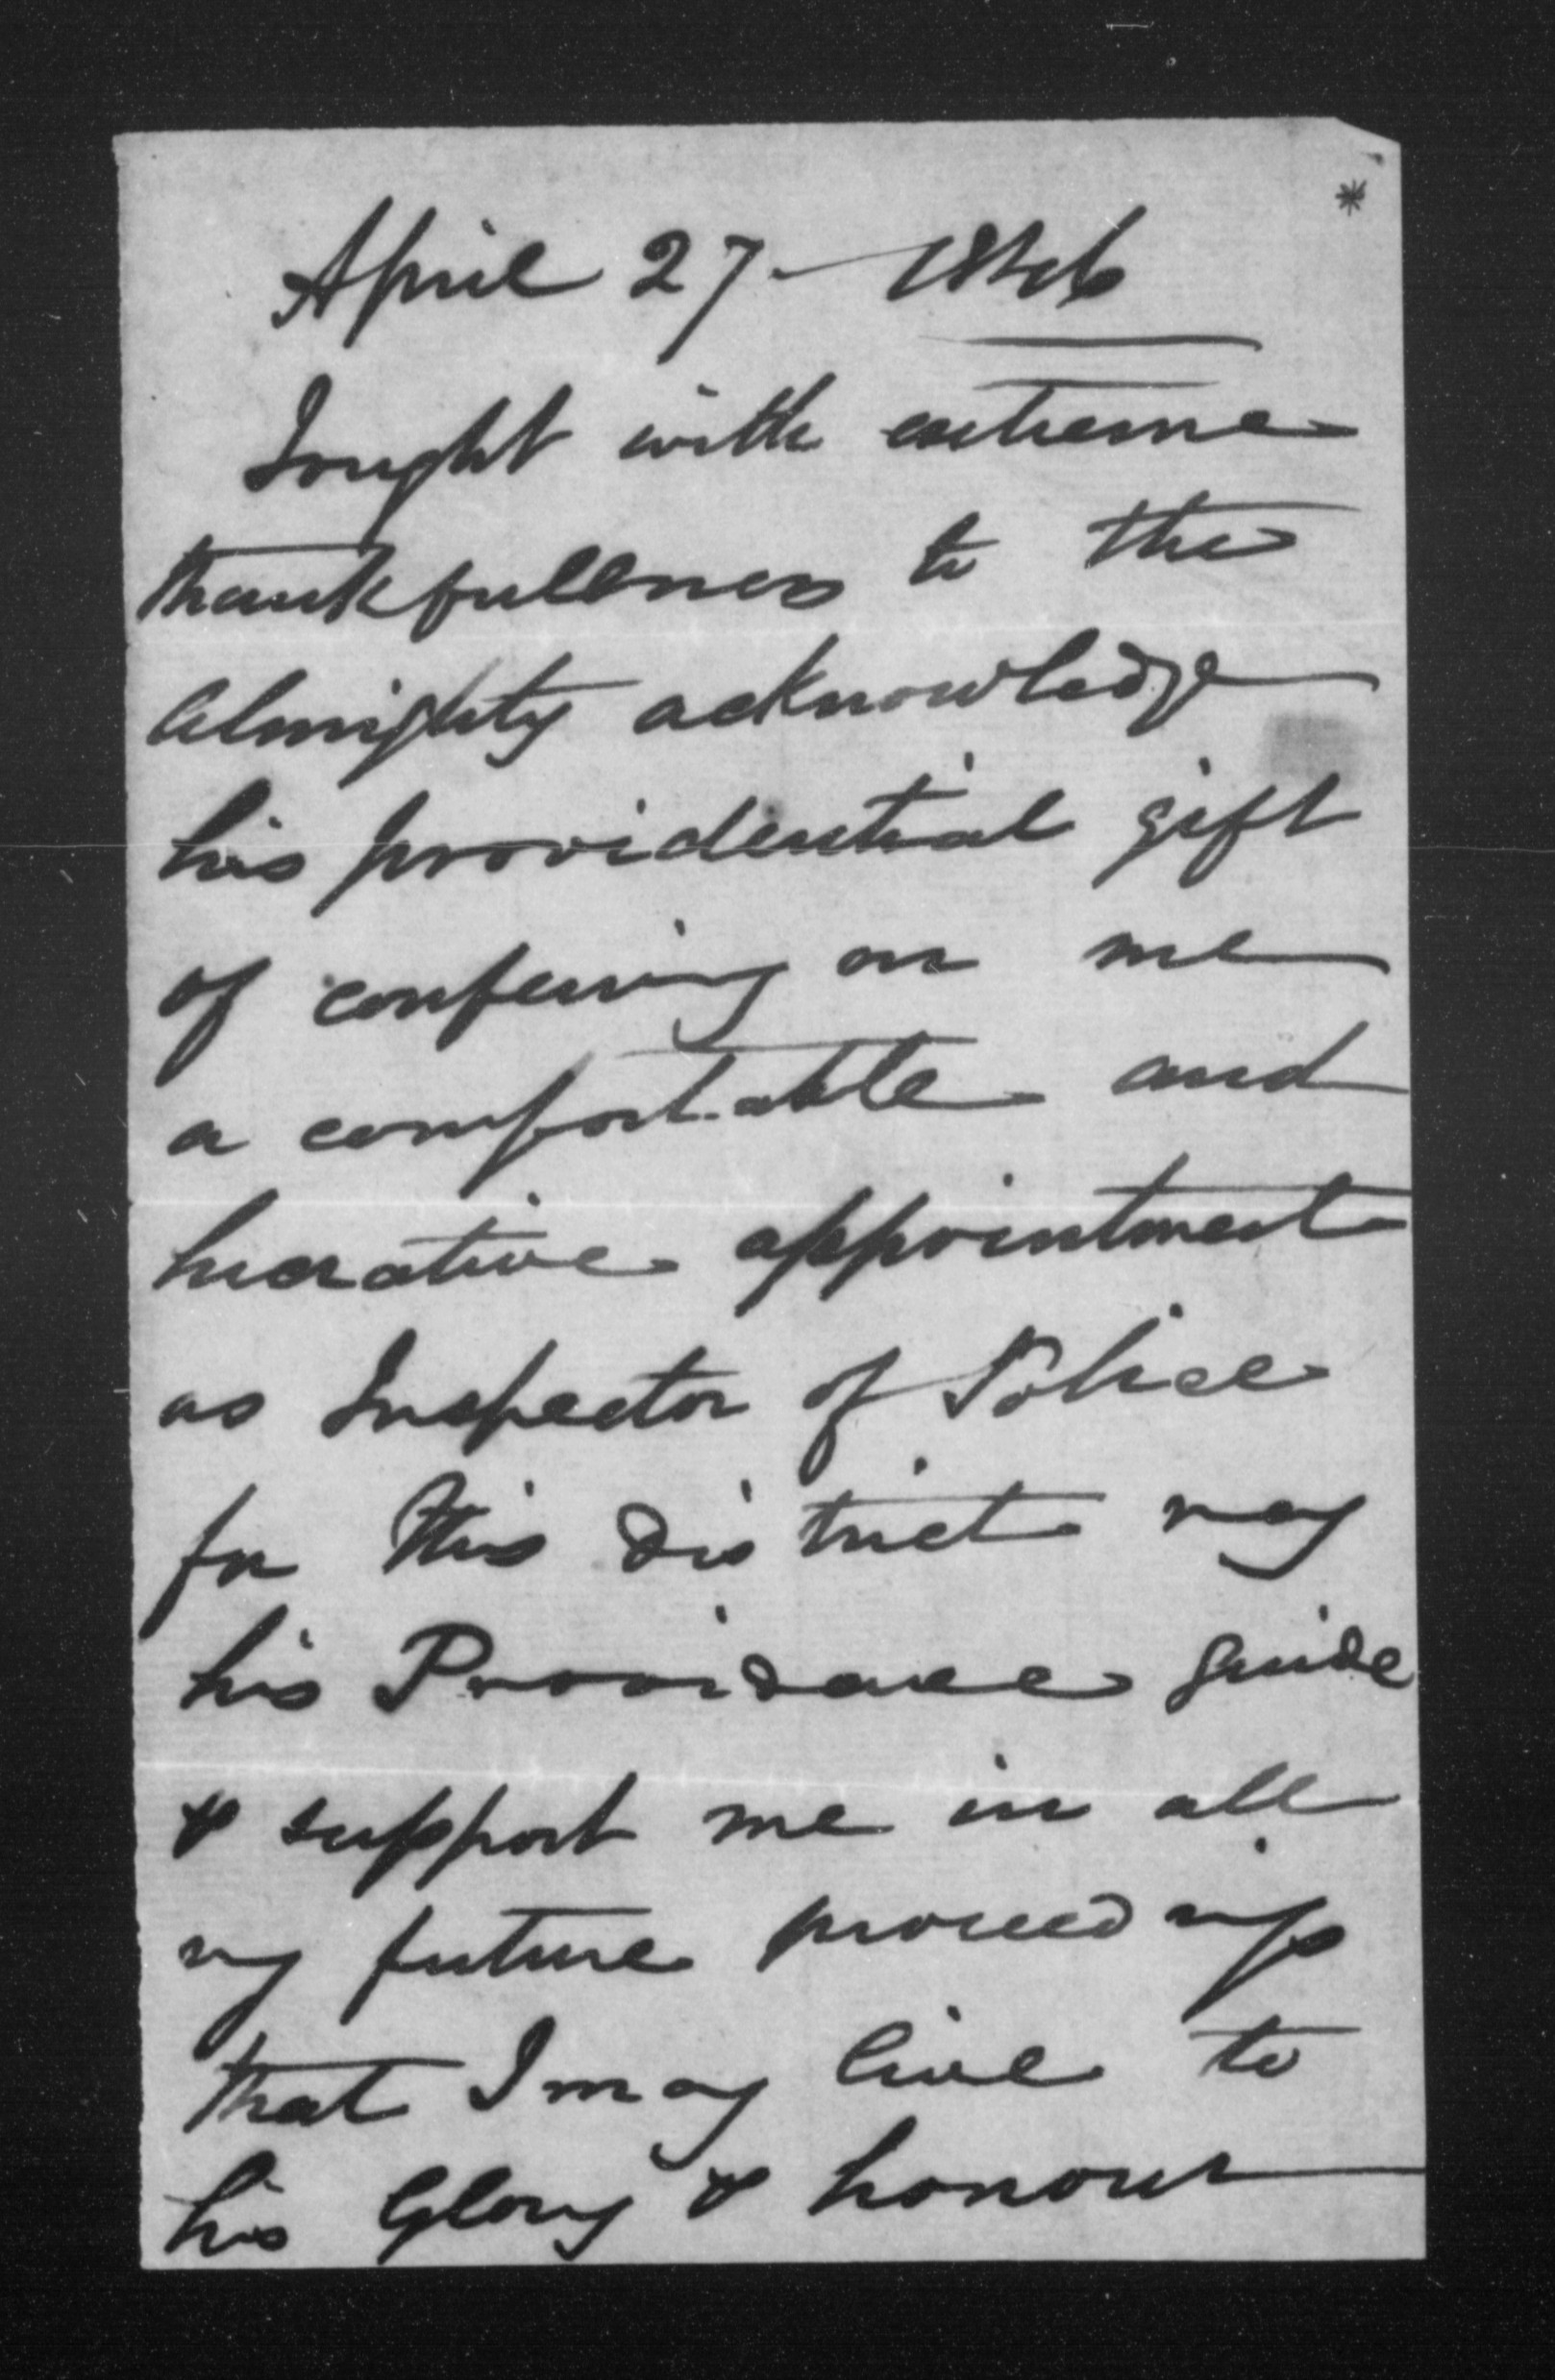 April 27 - 1846
I ought with extreme
thankfullness to the
almighty acknowledge
his providential gift
of conferring on me
a comfortable and
lucrative appointment
as Inspector of Police
for this district may
his Providence guide
& support me in all
my future proceedings
that I may live to
his Glory & honour